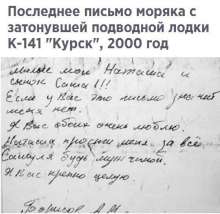 Последнее письмо моряка с
затонувшей подводной лодки
К-141 "Курск", 2000 год
Милые мои Наташа и
сынок Саша!!!
Если у Вас это письмо, значит
меня нет.
Я Вас обоих очень люблю.
Наташа, прости меня за всё.
Сашуля будь мужчиной.
Я Вас крепко целую.
Борисов А.М.